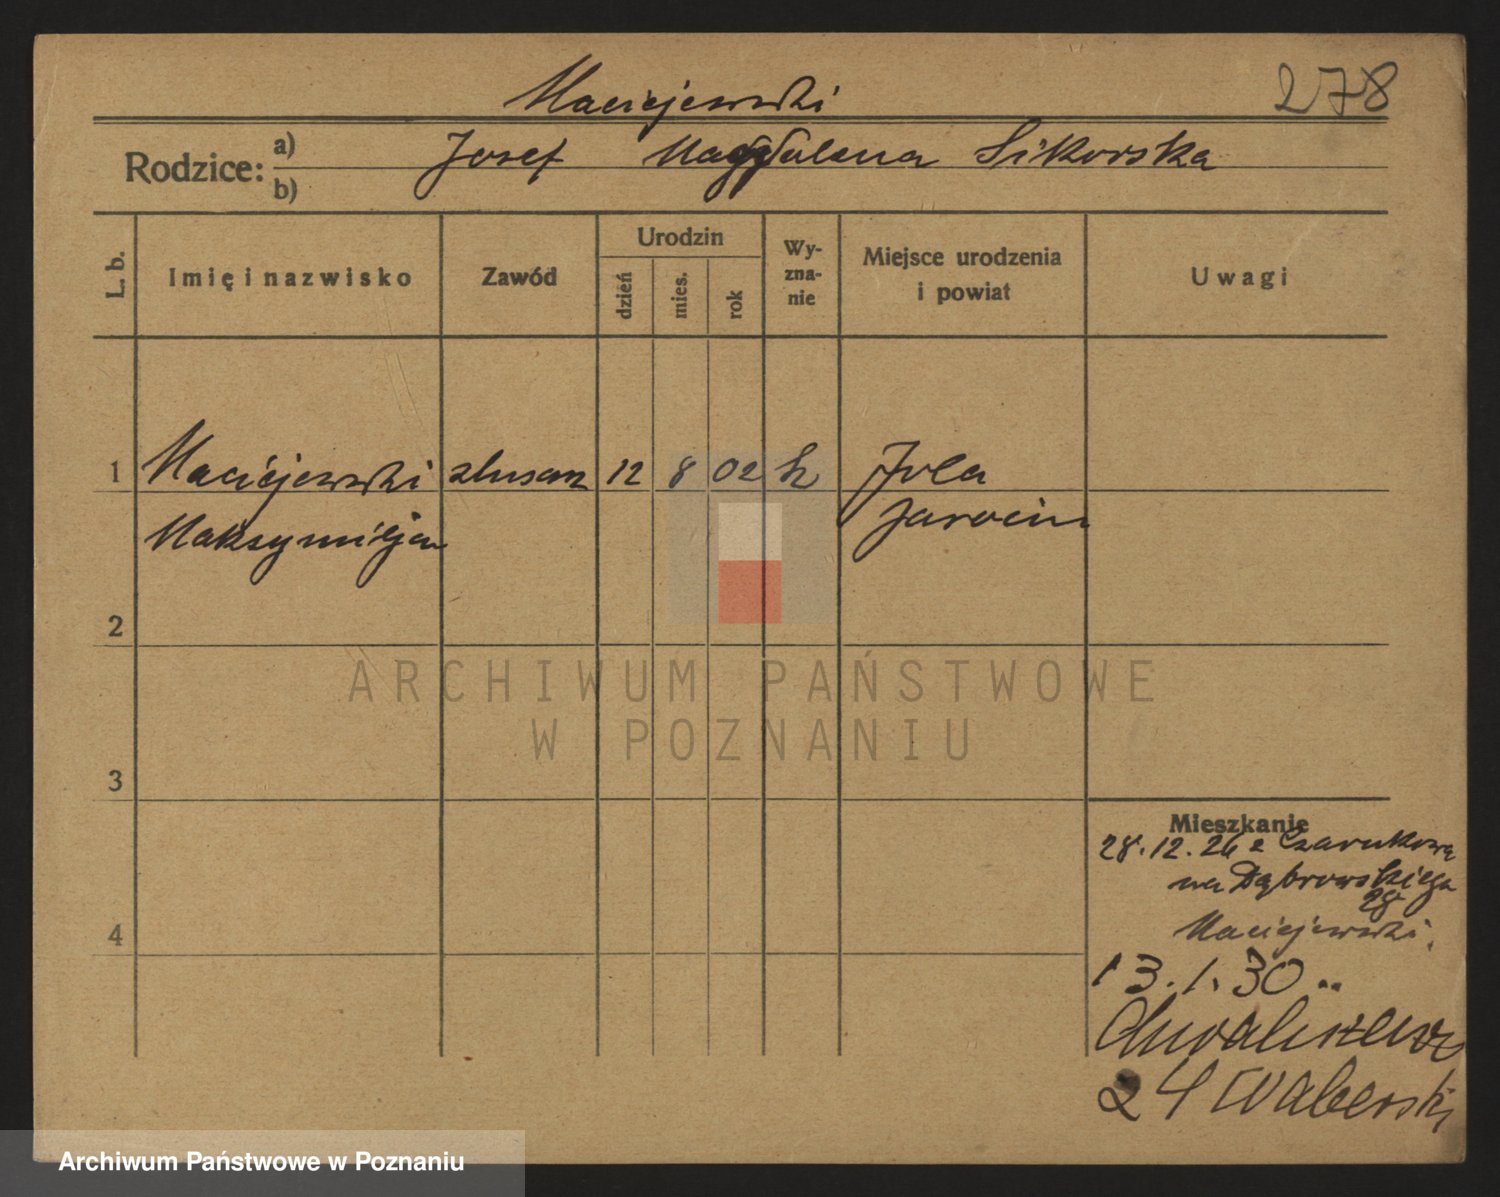 Maciejewski
278
Rodzice:
a) Josef Magdalena Sikorska
b)
L. b.
Imię i nazwisko
Zawód
Urodzin
dzień
mies.
rok
Wy-
zna-
nie
Miejsce urodzenia
i powiat
Uwagi
1 Maciejewski ślusarz 12 8 02 k
Jarocin
Maksymiljan
2
3
4
Mieszkanie
28.12.26 z Czarnkowa
na Dąbrowskiego
28
Maciejewski.
13.1.30
Chwaliszewo
24 Waberski
ARCHIWUM PAŃSTWOWE
W POZNANIU
Archiwum Państwowe w Poznaniu